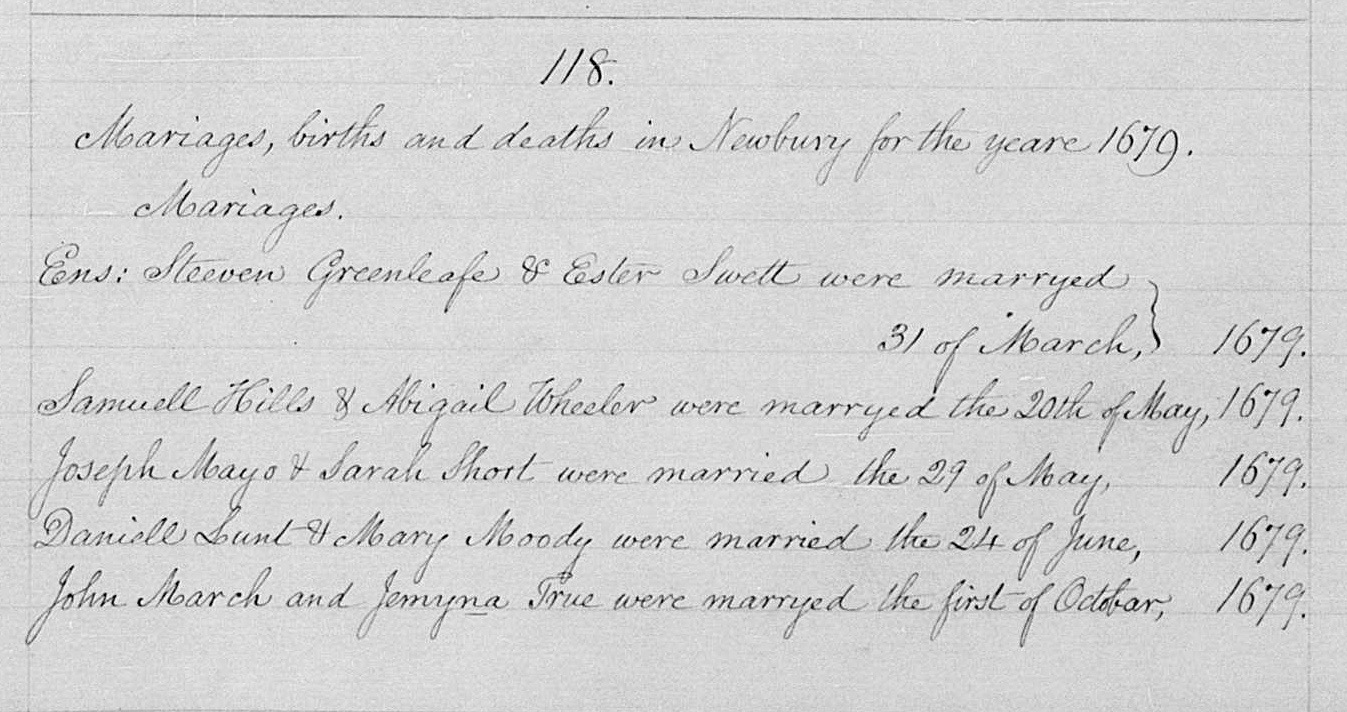 118.
Mariages, births and deaths in Newbury for the yeare 1679.
Mariages.
Ens: Steeven Greenleafe & Ester Swett were marryed
31 of March, 1679.
Samuell Hills & Abigail Wheeler were marryed the 20th of May, 1679.
Joseph Mayo & Sarah Short were married the 29 of May, 1679.
Daniell Lunt & Mary Moody were married the 24 of June, 1679.
John March and Jemyna True were marryed the first of Octobar, 1679.